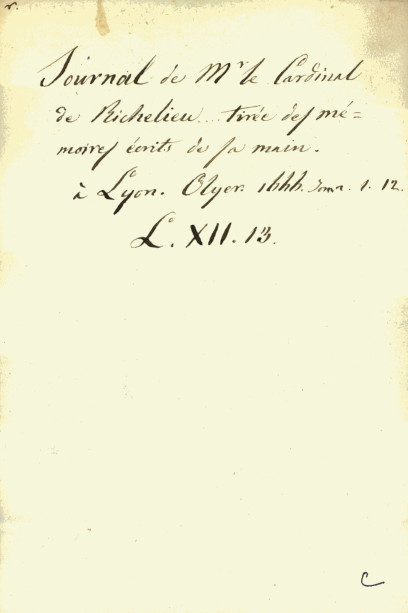 r.
Journal de Mr le Cardinal
de Richelieu tirée des mé=
moires écrits de sa main.
à Lyon. Olyer. 1666. Tom. 1. 12.
L. XII. 13.
C